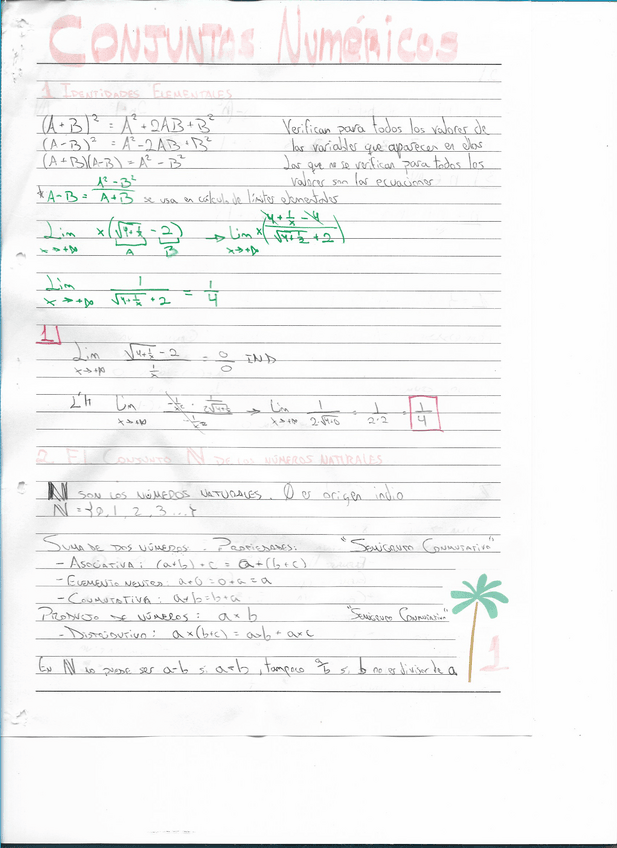 CONJUNTOS NUMÉRICOS
1 IDENTIDADES ELEMENTALES
(A+B)² = A² + 2AB + B² Verifican para todos los valores de
(A-B)² = A² - 2AB + B² las variables que aparecen en ellas
(A+B)(A-B) = A² - B² Las que no se verifican para todos los
valores son las ecuaciones
* A-B = (A²-B²)/(A+B) se usa en cálculo de límites elementales
Lim x→+∞ x(√(4+1/x) - 2) → Lim x→+∞ x((4+1/x-4)/(√(4+1/x)+2))
A B
Lim x→+∞ 1/(√(4+1/x)+2) = 1/4
1]
Lim x→+∞ (√(4+1/x)-2)/(1/x) = 0/0 IND
L'H Lim x→+∞ (-1/x² · 1/(2√(4+1/x)))/(-1/x²) → Lim x→+∞ 1/(2·√(4+0)) = 1/(2·2) = 1/4
2. El CONJUNTO ℕ DE LOS NÚMEROS NATURALES
ℕ SON LOS NÚMEROS NATURALES. 0 es origen indio
ℕ = {0, 1, 2, 3 ...}
SUMA DE DOS NÚMEROS. PROPIEDADES: "SEMIGRUPO CONMUTATIVO"
- ASOCIATIVA: (a+b)+c = a+(b+c)
- ELEMENTO NEUTRO: a+0 = 0+a = a
- CONMUTATIVA: a+b = b+a
PRODUCTO DE NÚMEROS: a×b "SEMIGRUPO CONMUTATIVO"
- DISTRIBUTIVO: a×(b+c) = a×b + a×c
EN ℕ no puede ser a-b si a<b, tampoco a/b si b no es divisor de a
1